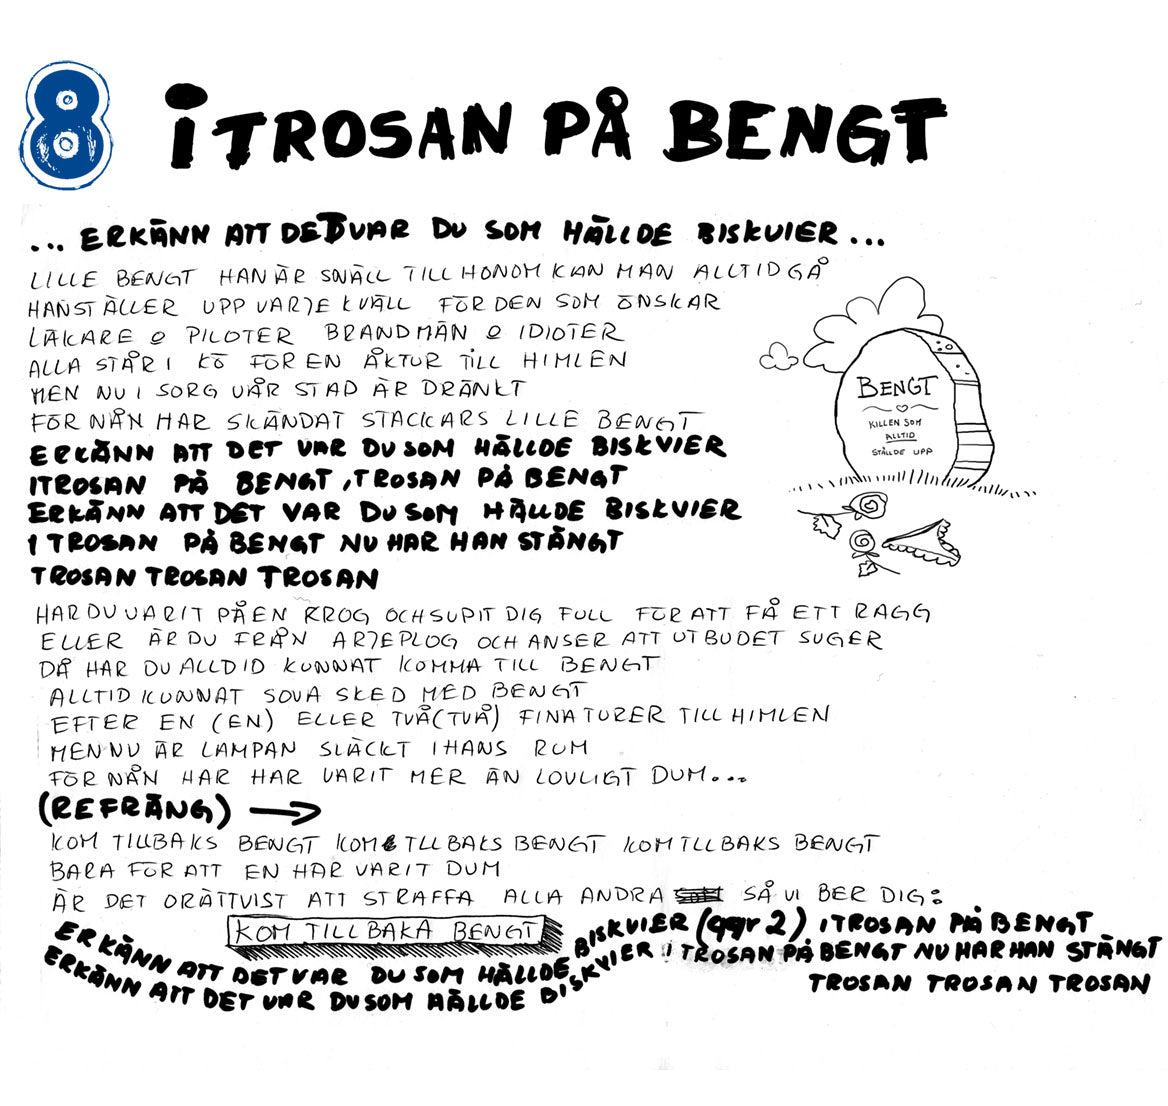 8 I TROSAN PÅ BENGT
... ERKÄNN ATT DET VAR DU SOM HÄLLDE BISKVIER ...
LILLE BENGT HAN ÄR SNÄLL TILL HONOM KAN MAN ALLTID GÅ
HAN STÄLLER UPP VARJE KVÄLL FÖR DEN SOM ÖNSKAR
LÄKARE & PILOTER BRANDMÄN & IDIOTER
ALLA STÅR I KÖ FÖR EN ÅKTUR TILL HIMLEN
MEN NU I SORG VÅR STAD ÄR DRÄNKT
FÖR NÅN HAR SKÄNDAT STACKARS LILLE BENGT
ERKÄNN ATT DET VAR DU SOM HÄLLDE BISKVIER
I TROSAN PÅ BENGT, TROSAN PÅ BENGT
ERKÄNN ATT DET VAR DU SOM HÄLLDE BISKVIER
I TROSAN PÅ BENGT NU HAR HAN STÄNGT
TROSAN TROSAN TROSAN
BENGT
KILLEN SOM
ALLTID
STÄLLDE UPP
HAR DU VARIT PÅ EN KROG OCH SUPIT DIG FULL FÖR ATT FÅ ETT RAGG
ELLER ÄR DU FRÅN ARJEPLOG OCH ANSER ATT UTBUDET SUGER
DÅ HAR DU ALLDID KUNNAT KOMMA TILL BENGT
ALLTID KUNNAT SOVA SKED MED BENGT
EFTER EN (EN) ELLER TVÅ (TVÅ) FINA TURER TILL HIMLEN
MEN NU ÄR LAMPAN SLÄCKT I HANS RUM
FÖR NÅN HAR HAR VARIT MER ÄN LOVLIGT DUM...
(REFRÄNG) →
KOM TILLBAKS BENGT KOM TLLBAKS BENGT KOM TLLBAKS BENGT
BARA FÖR ATT EN HAR VARIT DUM
ÄR DET ORÄTTVIST ATT STRAFFA ALLA ANDRA SÅ VI BER DIG:
KOM TILL BAKA BENGT
ERKÄNN ATT DET VAR DU SOM HÄLLDE BISKVIER (ggr 2) I TROSAN PÅ BENGT
ERKÄNN ATT DET VAR DU SOM HÄLLDE BISKVIER I TROSAN PÅ BENGT NU HAR HAN STÄNGT
TROSAN TROSAN TROSAN